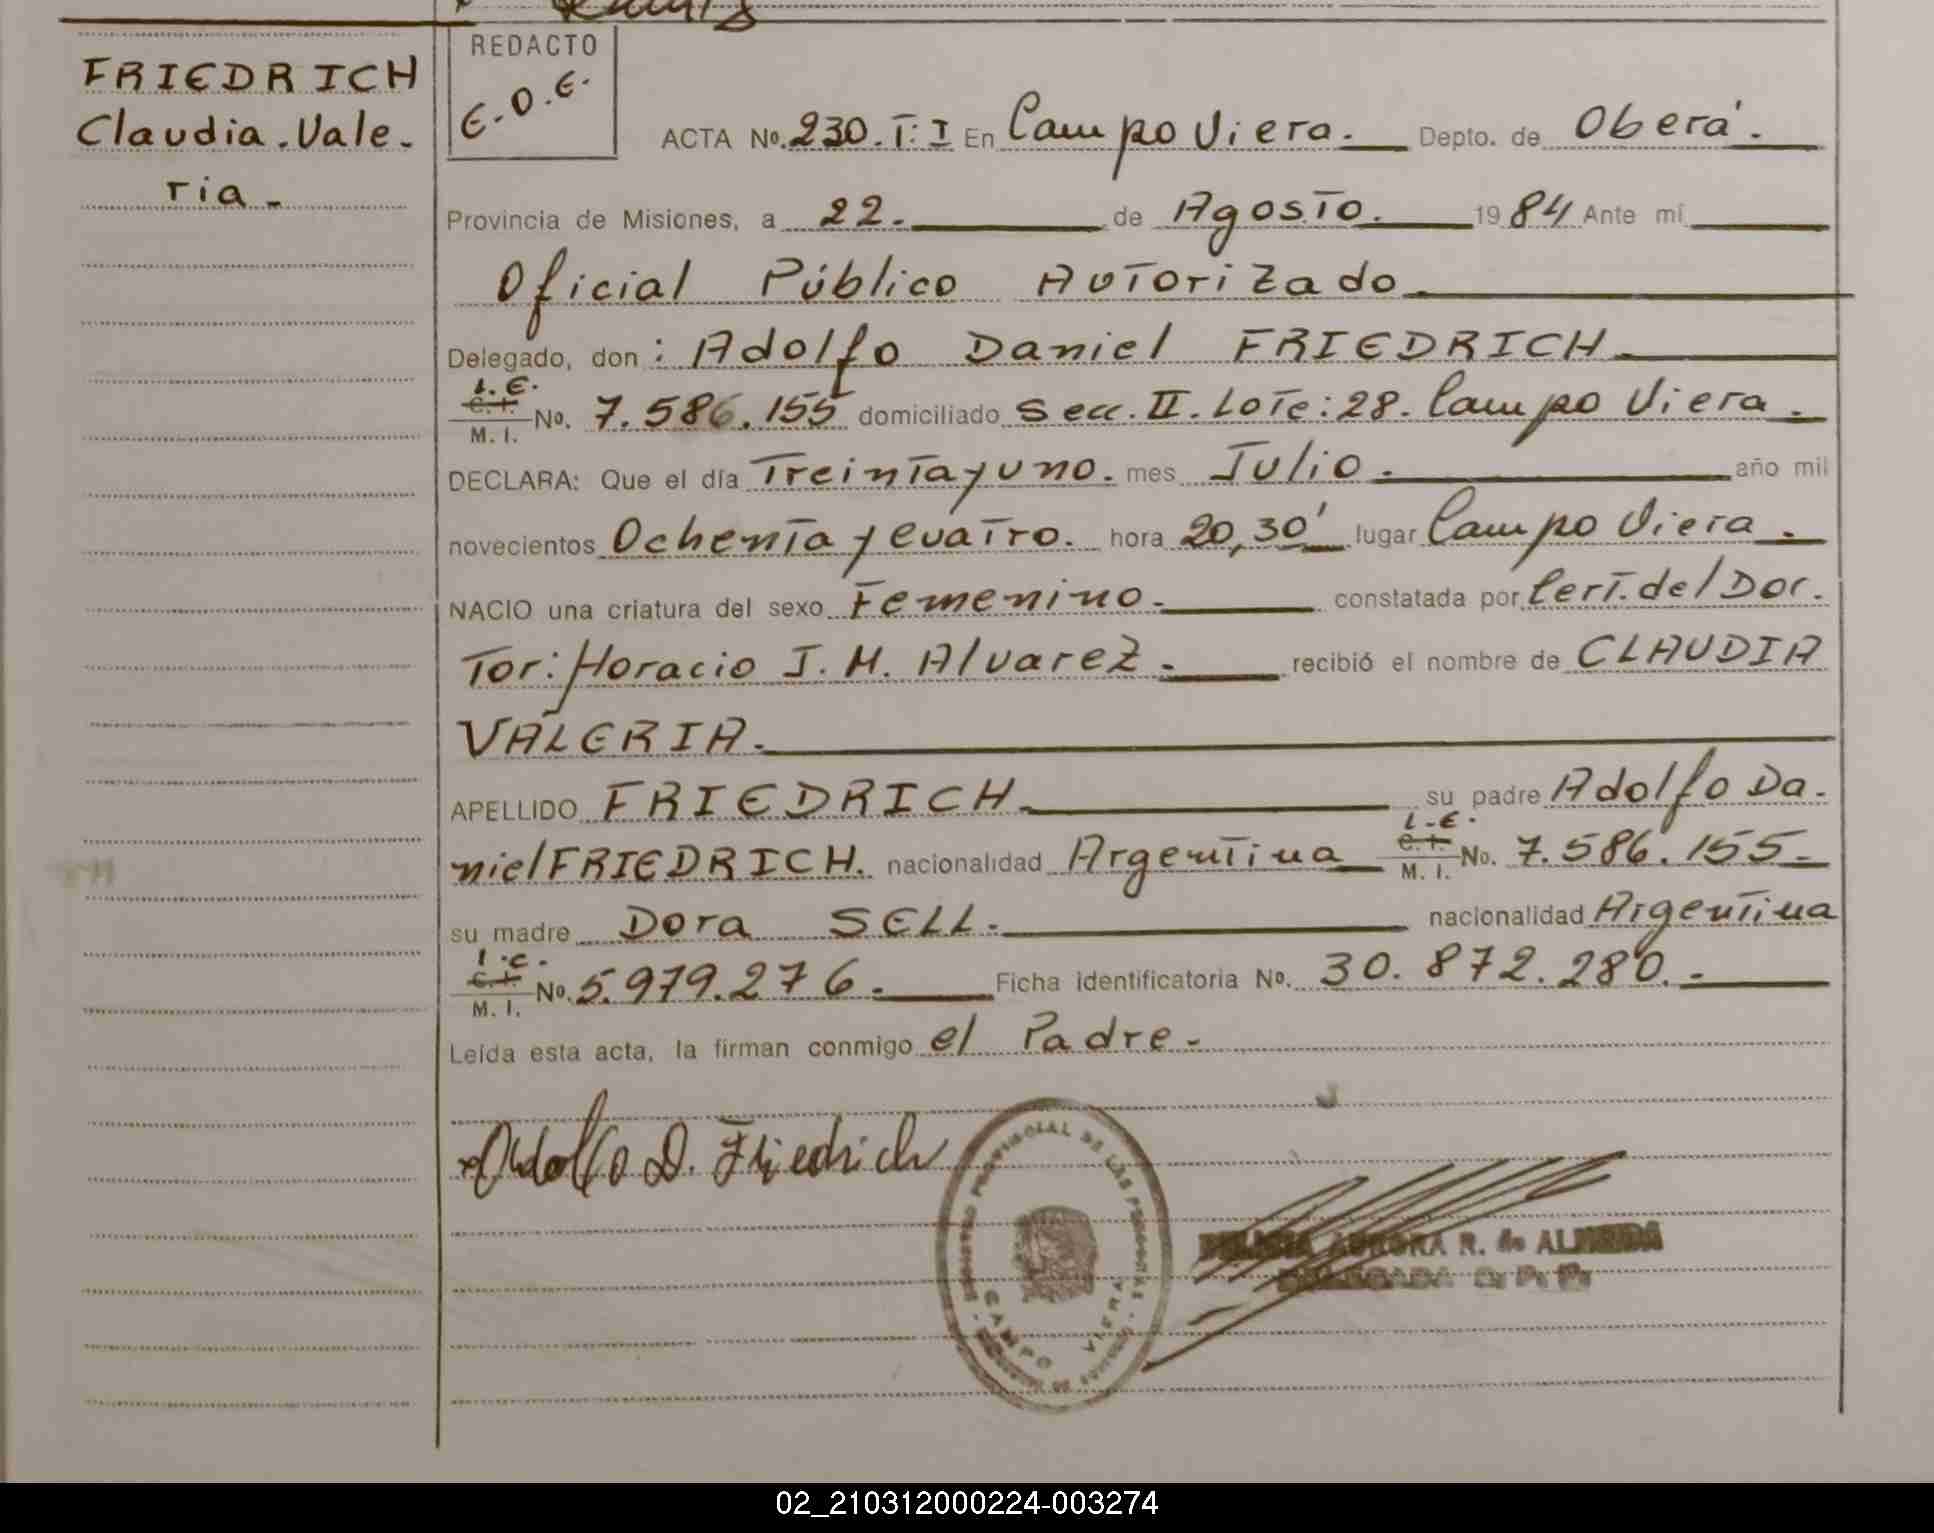 FRIEDRICH
Claudia.Vale-
ria.-
REDACTO
E.O.E.
ACTA No. 230. T: I En Campo Viera. Depto. de Oberá.
Provincia de Misiones, a 22. de Agosto. 1984 Ante mí
Oficial Público Autorizado.
Delegado, don: Adolfo Daniel FRIEDRICH.
L.E.
C.I.
M. I. No. 7.586.155 domiciliado Secc. II. Lote: 28. Campo Viera.
DECLARA: Que el día Treinta y uno. mes Julio. año mil
novecientos Ochenta y cuatro. hora 20,30' lugar Campo Viera.
NACIO una criatura del sexo Femenino. constatada por Cert. del Doc.
Tor: Horacio J. M. Alvarez. recibió el nombre de CLAUDIA
VALERIA.
APELLIDO FRIEDRICH. su padre Adolfo Da.
niel FRIEDRICH. nacionalidad Argentina L.E. C.I. M. I. No. 7.586.155.
su madre Dora SELL. nacionalidad Argentina
L.C.
C.I.
M. I. No. 5.979.276. Ficha identificatoria No. 30.872.280.
Leída esta acta, la firman conmigo el Padre.-
Adolfo D. Friedrich
REGISTRO PROVINCIAL DE LAS PERSONAS
CAMPO VIERA
AURORA R. de ALMEIDA
DELEGADA
02_210312000224-003274